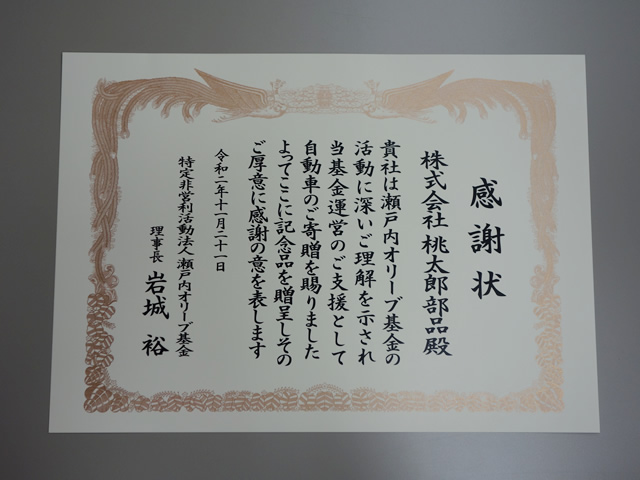 感謝状
株式会社 桃太郎部品殿
貴社は瀬戸内オリーブ基金の
活動に深いご理解を示され
当基金運営のご支援として
自動車のご寄贈を賜りました
よってここに記念品を贈呈しその
ご厚意に感謝の意を表します
令和二年十一月二十一日
特定非営利活動法人 瀬戸内オリーブ基金
理事長 岩城 裕